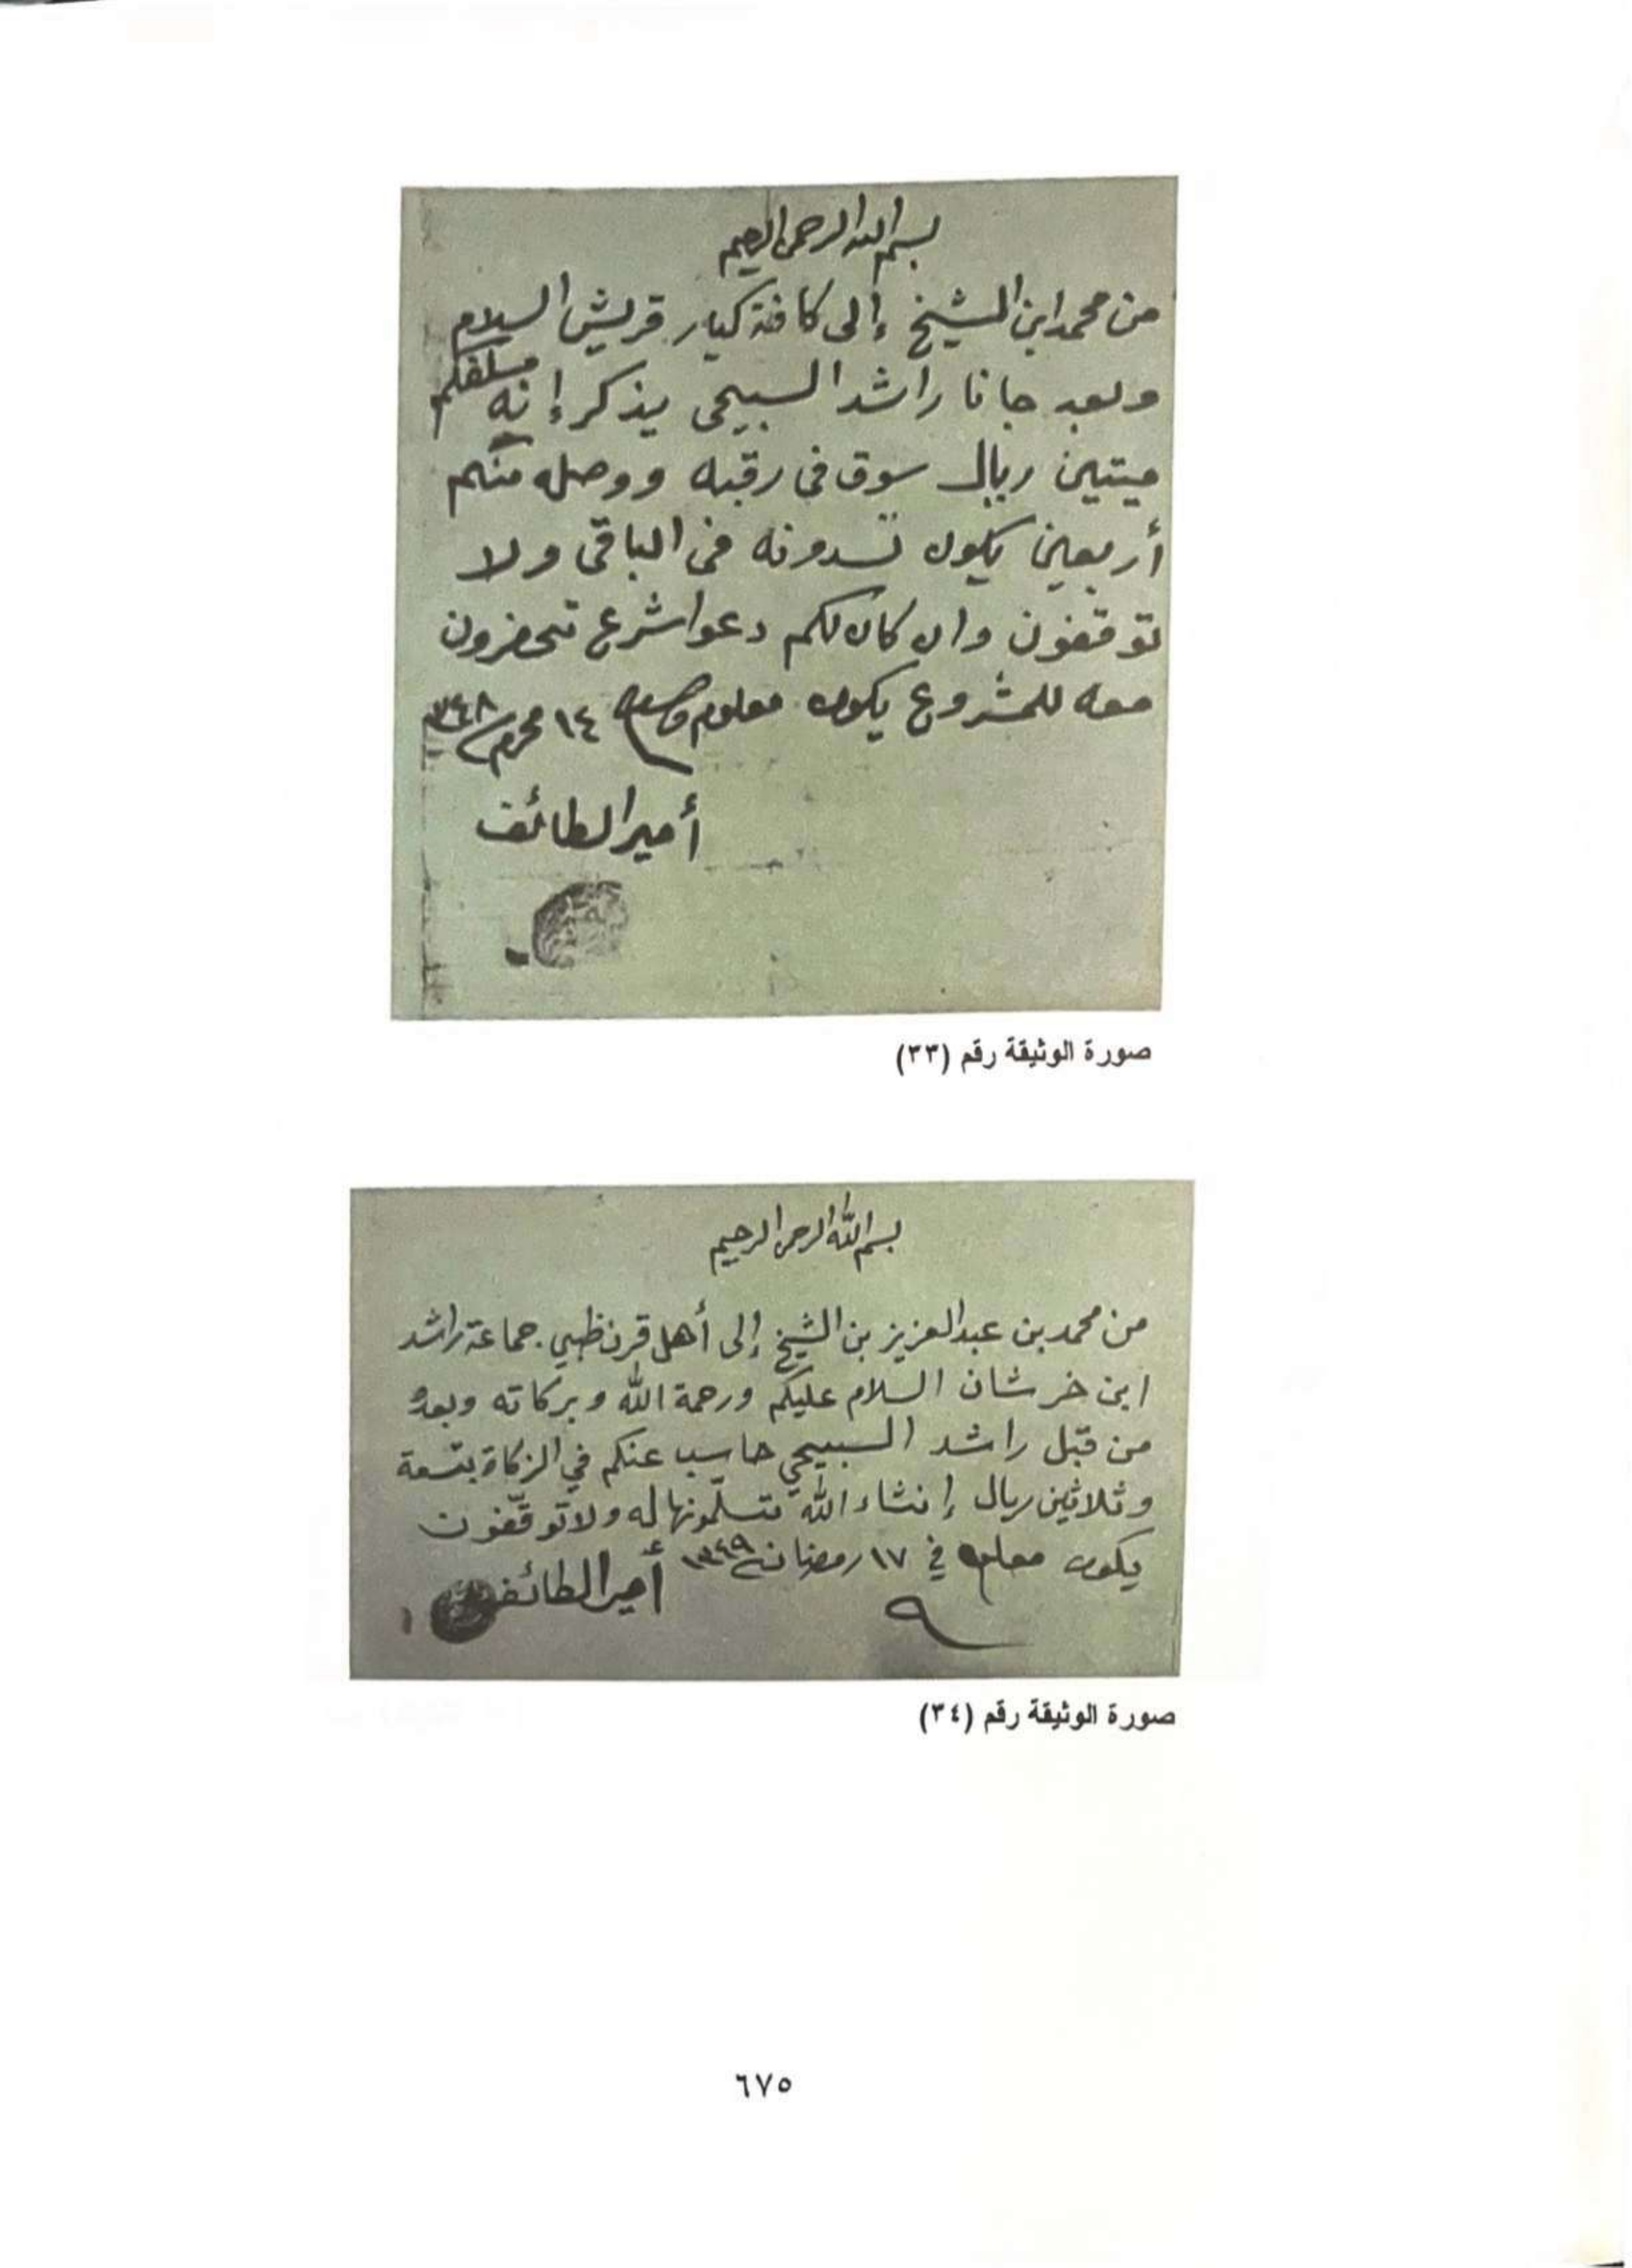 بسم الله الرحمن الرحيم
من محمد ابن الشيخ إلى كافة كبار قريش السلام
وبعد جانا راشد السبيحي يذكر إنه مسلفكم
ميتين ريال سوق في رقبه ووصله منكم
أربعين يكون تسدونه في الباقي ولا
توقفون وان كان لكم دعوا شرع تحضرون
معه للمشروع يكون معلوم ١٤ محرم ١٣٤٨
أمير الطائف
صورة الوثيقة رقم (٣٣)
بسم الله الرحمن الرحيم
من محمد بن عبدالعزيز بن الشيخ إلى أهل قرن ظبي جماعة راشد
ابن خرشان السلام عليكم ورحمة الله وبركاته وبعد
من قبل راشد السبيحي حاسب عنكم في الزكاة بتسعة
وثلاثين ريال إنشاء الله تتسلمونها له ولا توقفون
يكون معلوم في ١٧ رمضان ١٣٤٩
أمير الطائف
صورة الوثيقة رقم (٣٤)
٦٧٥